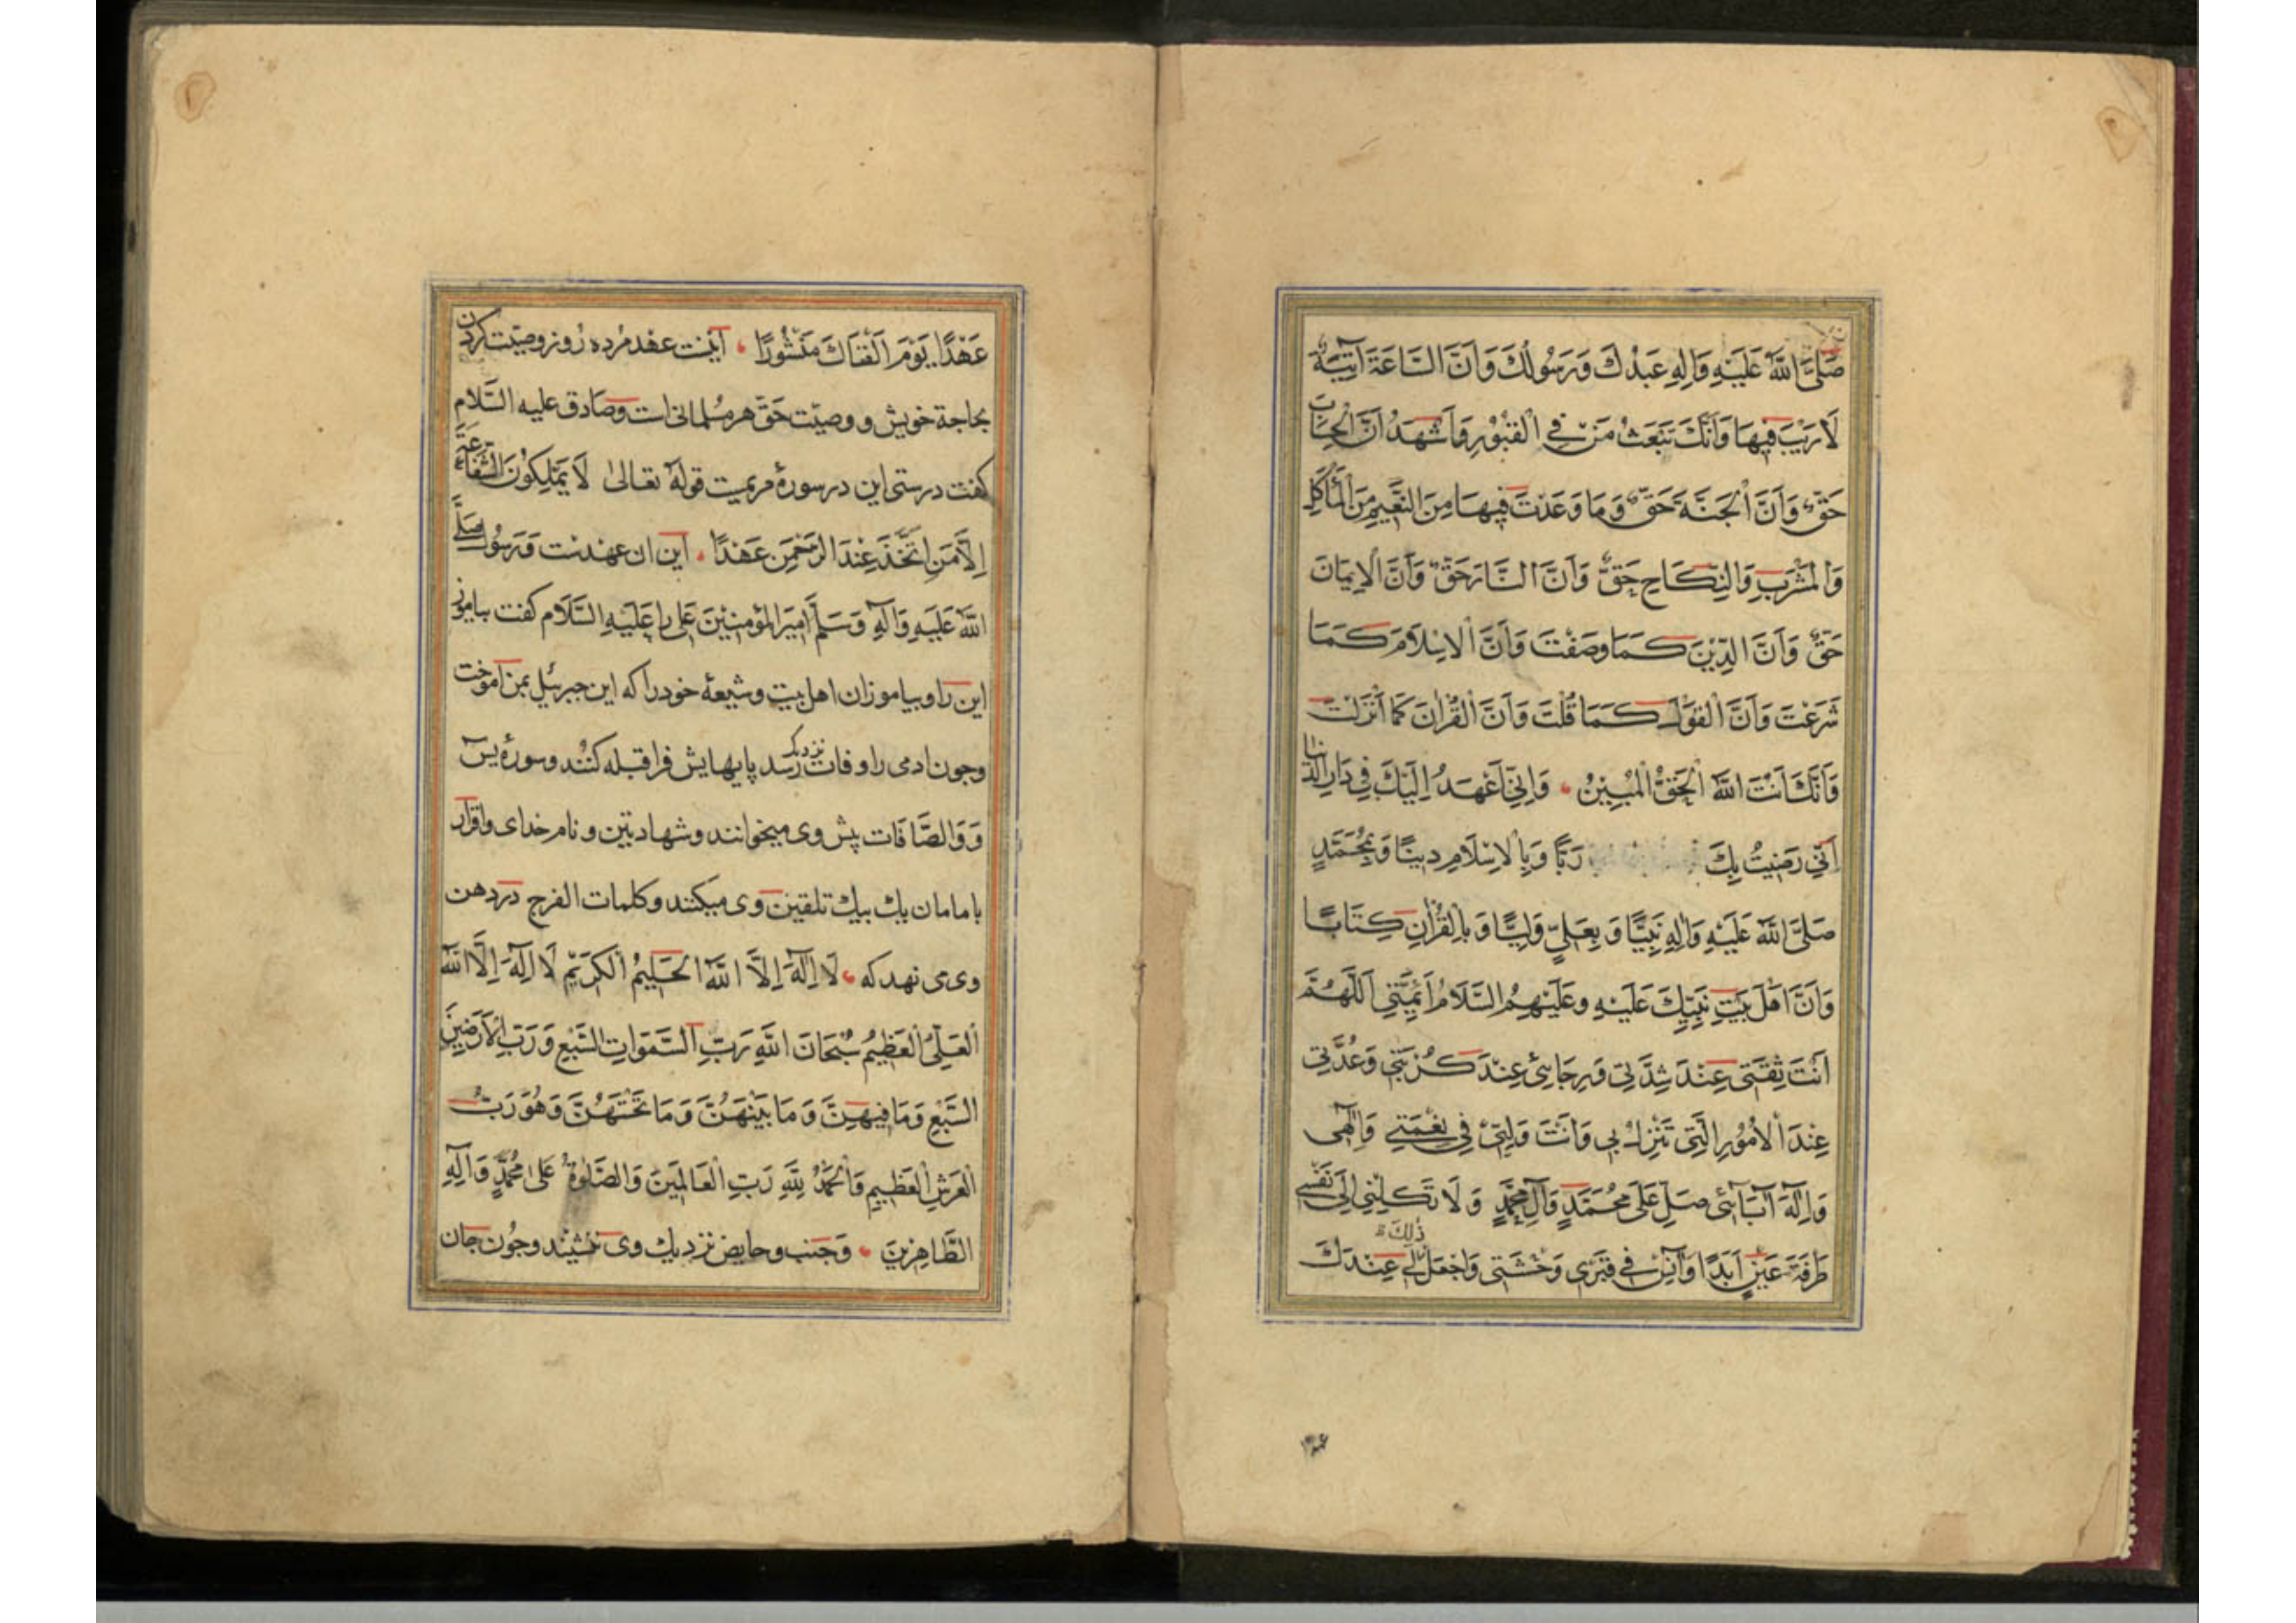 صَلَّى اللَّهُ عَلَيْهِ وَآلِهِ عَبْدُكَ وَرَسُولُكَ وَاَنَّ السَّاعَةَ آتِيَةٌ
لَا رَيْبَ فِيهَا وَاَنَّكَ تَبْعَثُ مَنْ فِي الْقُبُورِ وَاَشْهَدُ اَنَّ الْحِسَابَ
حَقٌّ وَاَنَّ الْجَنَّةَ حَقٌّ وَمَا وَعَدْتَ فِيهَا مِنَ النَّعِيمِ مِنَ الْمَأْكَلِ
وَالْمَشْرَبِ وَالنِّكَاحِ حَقٌّ وَاَنَّ النَّارَ حَقٌّ وَاَنَّ الْاِيمَانَ
حَقٌّ وَاَنَّ الدِّيْنَ كَمَا وَصَفْتَ وَاَنَّ الْاِسْلَامَ كَمَا
شَرَعْتَ وَاَنَّ الْقَوْلَ كَمَا قُلْتَ وَاَنَّ الْقُرْانَ كَمَا اَنْزَلْتَ
وَاَنَّكَ اَنْتَ اللَّهُ الْحَقُّ الْمُبِيْنُ وَاِنِّي اَعْهَدُ اِلَيْكَ فِي دَارِ الدُّنْيَا
اَنِّي رَضِيتُ بِكَ رَبًّا وَبِالْاِسْلَامِ دِينًا وَبِمُحَمَّدٍ
صَلَّى اللَّهُ عَلَيْهِ وَآلِهِ نَبِيًّا وَبِعَلِيٍّ وَلِيًّا وَبِالْقُرْانِ كِتَابًا
وَاَنَّ اَهْلَ بَيْتِ نَبِيِّكَ عَلَيْهِ وَعَلَيْهِمُ السَّلَامُ اَئِمَّتِي اَللَّهُمَّ
اَنْتَ ثِقَتِي عِنْدَ شِدَّتِي وَرَجَائِي عِنْدَ كُرْبَتِي وَعُدَّتِي
عِنْدَ الْاُمُورِ الَّتِي تَنْزِلُ بِي وَاَنْتَ وَلِيِّي فِي نِعْمَتِي وَاِلٰهِي
وَاِلٰهَ آبَائِي صَلِّ عَلَى مُحَمَّدٍ وَآلِ مُحَمَّدٍ وَلَا تَكِلْنِي اِلَى نَفْسِي
طَرْفَةَ عَيْنٍ اَبَدًا وَآنِسْ فِي قَبْرِي وَحْشَتِي وَاجْعَلْ لِي ذٰلِكَ عِنْدَكَ
عَهْدًا يَوْمَ اَلْقَاكَ مَنْشُورًا اینست عهد مرده روز وصیت کردن
بحاجة خویش و وصیّت حقّ هر مسلمانی است و صادق علیه السّلام
کفت درستی این در سورهٔ مریمست قوله تعالی لَا يَمْلِكُوْنَ الشَّفَاعَةَ
اِلَّا مَنِ اتَّخَذَ عِنْدَ الرَّحْمٰنِ عَهْدًا این ان عهدست و رسول صَلَّى
اللَّهُ عَلَيْهِ وَآلِهِ وَسَلَّمَ اَمِيرَ الْمُؤْمِنِيْنَ عَلِي را عَلَيْهِ السَّلَام کفت بیاموز
این را و بیاموزان اهل بیت و شیعهٔ خود را که این جبرئیل بمن آموخت
و چون ادمی را وفات نزدیک رسد پایهایش فرا قبله کنند و سورهٔ یس
وَوَالصَّافَات پیش وی میخوانند و شهادتین و نام خدای و اقرار
بامامان یك بیك تلقین وی میکنند و کلمات الفرج در دهن
وی می نهد که لَا اِلٰهَ اِلَّا اللَّهُ الْحَلِيمُ الْكَرِيْمُ لَا اِلٰهَ اِلَّا اللَّهُ
الْعَلِيُّ الْعَظِيْمُ سُبْحَانَ اللَّهِ رَبِّ السَّمٰوَاتِ السَّبْعِ وَرَبِّ الْاَرَضِيْنَ
السَّبْعِ وَمَا فِيهِنَّ وَمَا بَيْنَهُنَّ وَمَا تَحْتَهُنَّ وَهُوَ رَبُّ
الْعَرْشِ الْعَظِيمِ وَالْحَمْدُ لِلَّهِ رَبِّ الْعَالَمِيْنَ وَالصَّلٰوةُ عَلَى مُحَمَّدٍ وَآلِهِ
الطَّاهِرِيْنَ وَجنب و حایض نزدیك وی ننشینند و چون جان